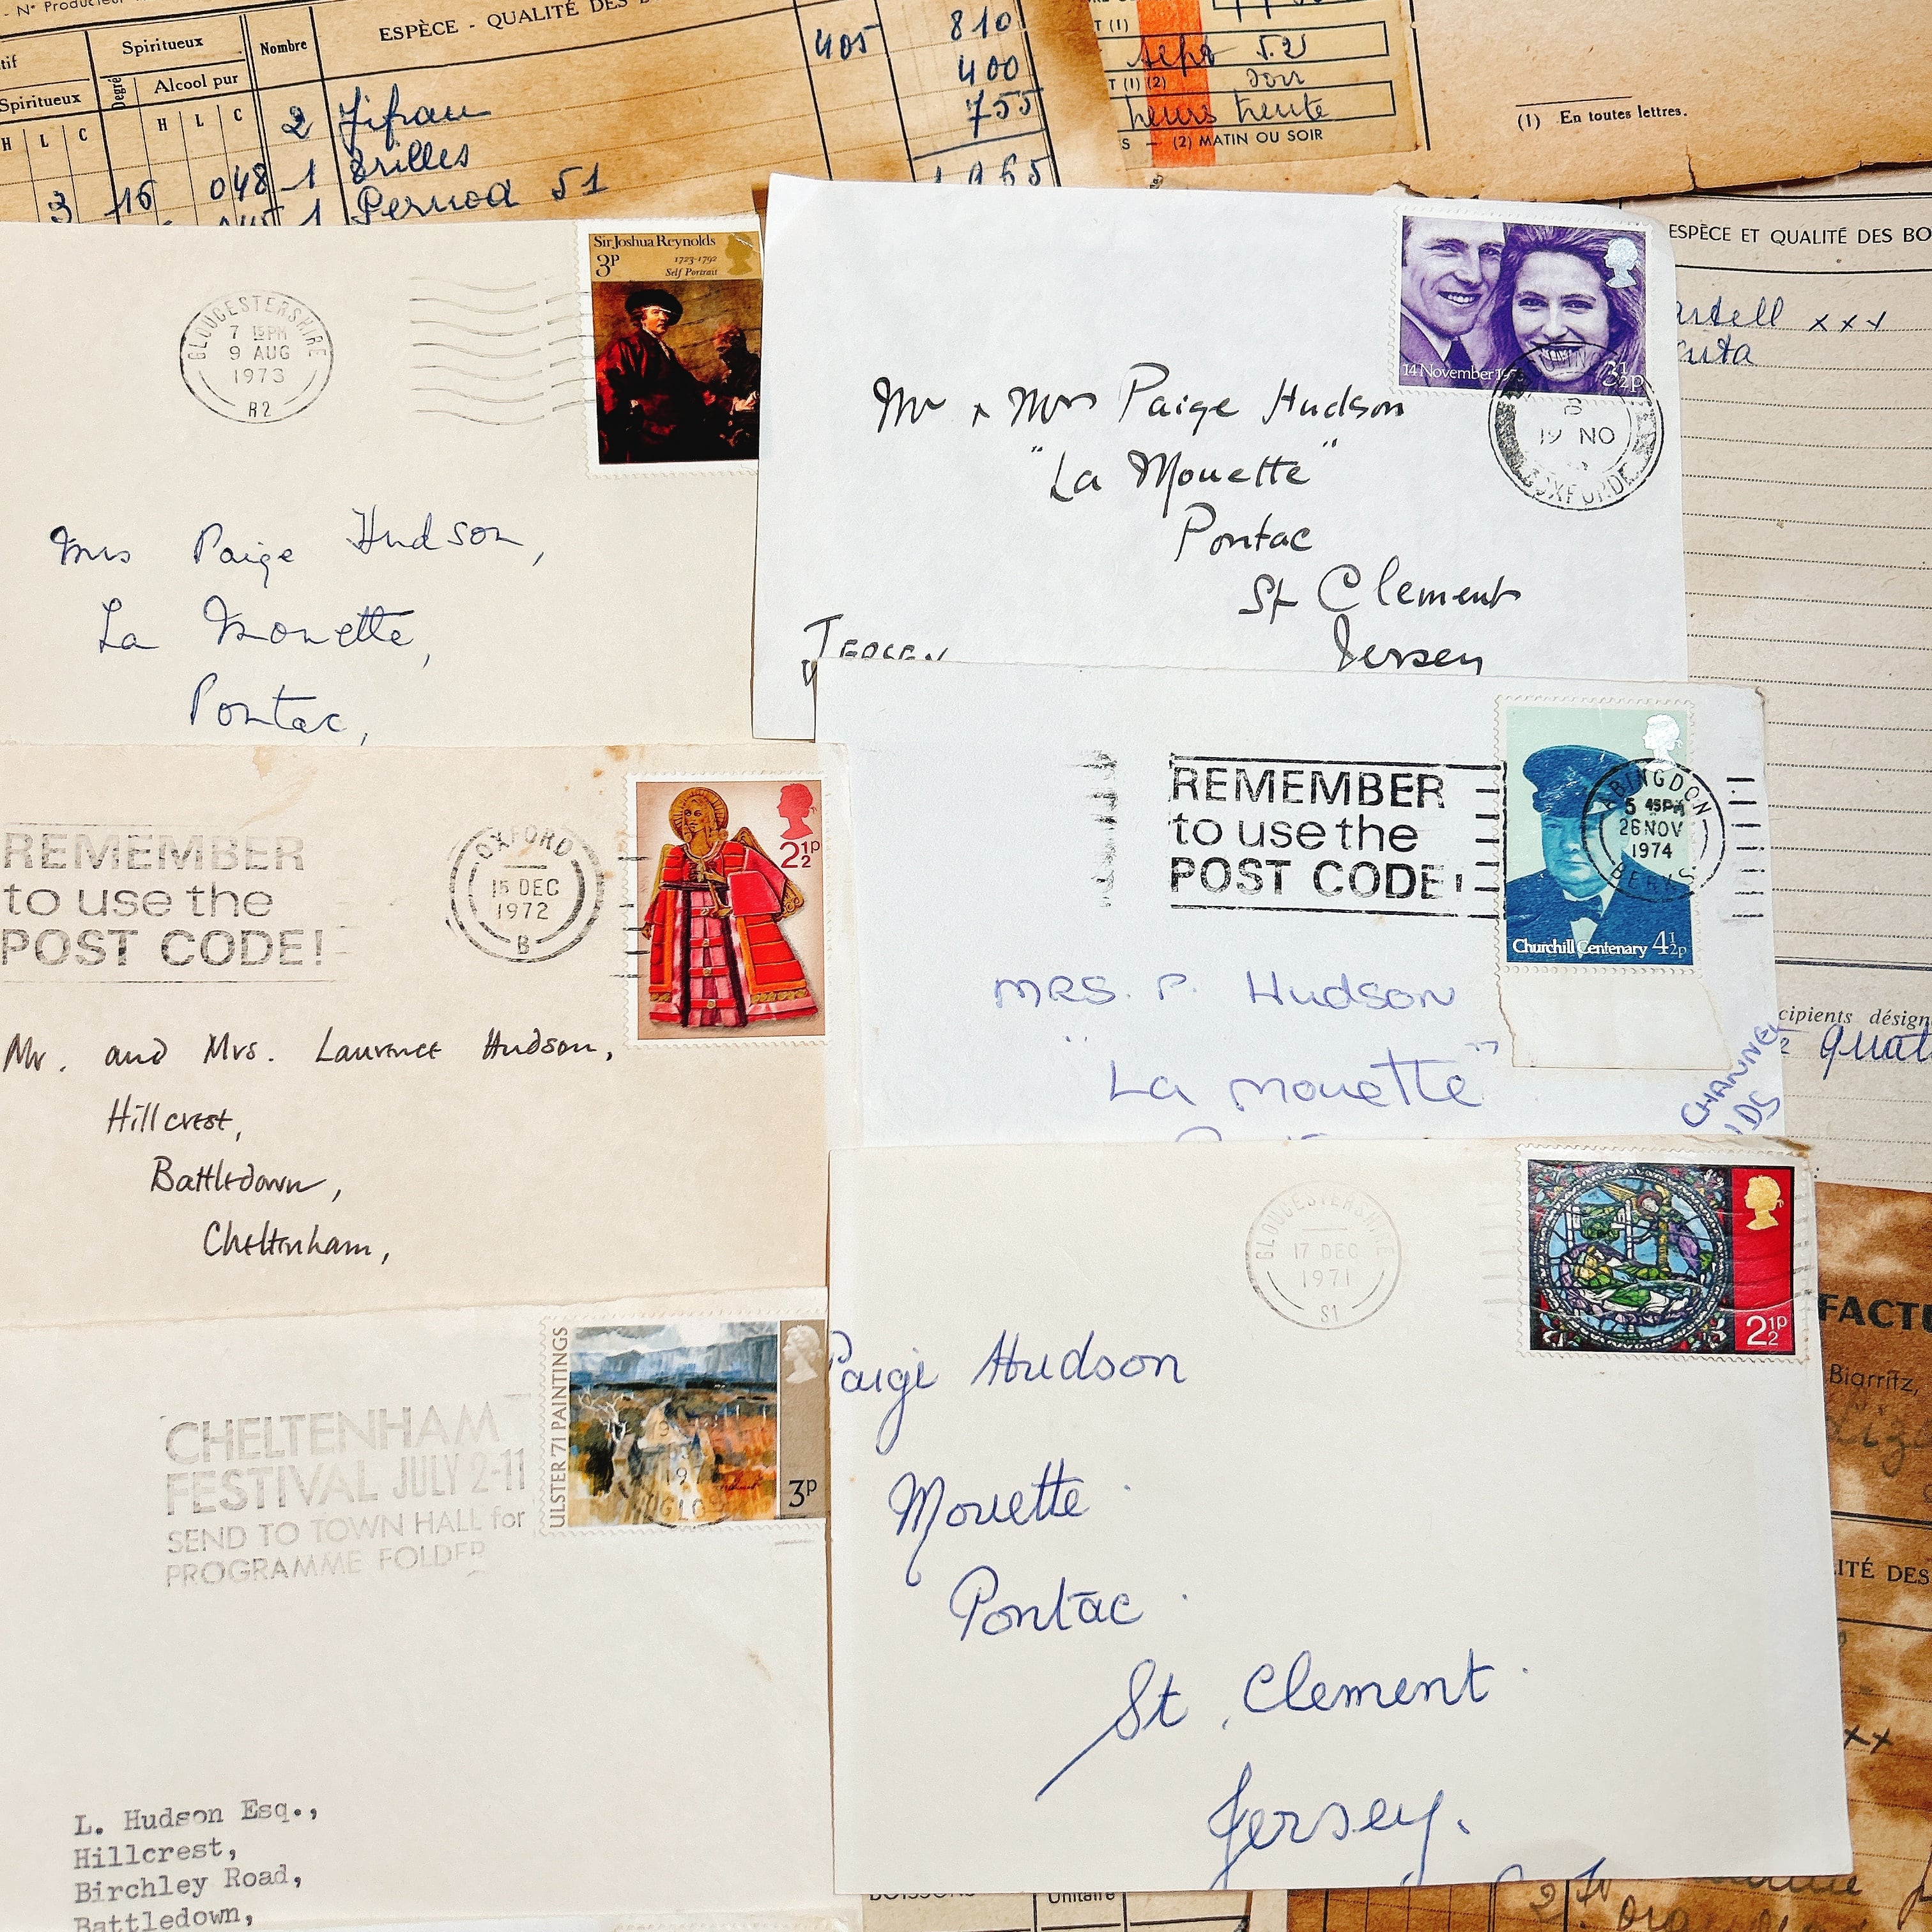 N° Producteur
ESPÈCE - QUALITÉ DES
Spiritueux
Nombre
Degré
Alcool pur
Spiritueux
H L C
H L C
405
810
400
755
2
3 16 048 1
Pernod 51
1965
T (1)
Sept 52
T (1) (2)
heures trente
S — (2) MATIN OU SOIR
(1) En toutes lettres.
Sir Joshua Reynolds
3P
1723-1792
Self Portrait
GLOUCESTERSHIRE
7 15PM
9 AUG
1973
R2
Mrs Paige Hudson,
La Mouette,
Pontac,
14 November 19
3½p
B
19 NO
Mr & Mrs Paige Hudson
"La Mouette"
Pontac
St Clement
Jersey
JERSEY
ESPÈCE ET QUALITÉ DES BO
xxx
REMEMBER
to use the
POST CODE!
OXFORD
15 DEC
1972
B
2½p
Mr. and Mrs. Laurence Hudson,
Hillcrest,
Battledown,
Cheltenham,
REMEMBER
to use the
POST CODE!
ABINGDON
5 45PM
26 NOV
1974
BERKS
Churchill Centenary 4½p
MRS. P. Hudson
"La Mouette"
CHANNEL
IDS
cipients désign
quat
CHELTENHAM
FESTIVAL JULY 2-11
SEND TO TOWN HALL for
PROGRAMME FOLDER
ULSTER '71 PAINTINGS
3p
L. Hudson Esq.,
Hillcrest,
Birchley Road,
Battledown,
GLOUCESTERSHIRE
17 DEC
1971
S1
2½p
Paige Hudson
Mouette
Pontac
St. Clement
Jersey.
FACTU
Biarritz,
ITÉ DES
xx
Unitaire